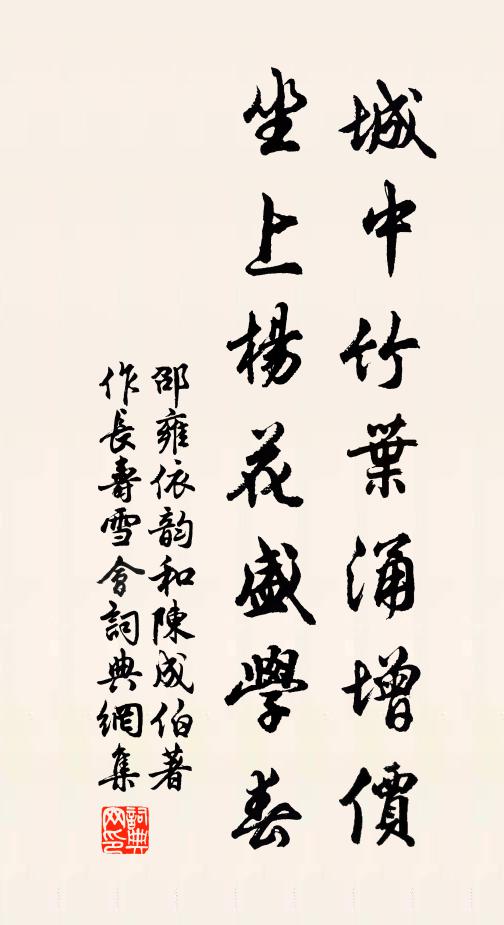 城中竹葉涌增價
坐上楊花盛學春
邵雍依韵和陳成伯著
作長壽雪會詞典網集
詞典
网印